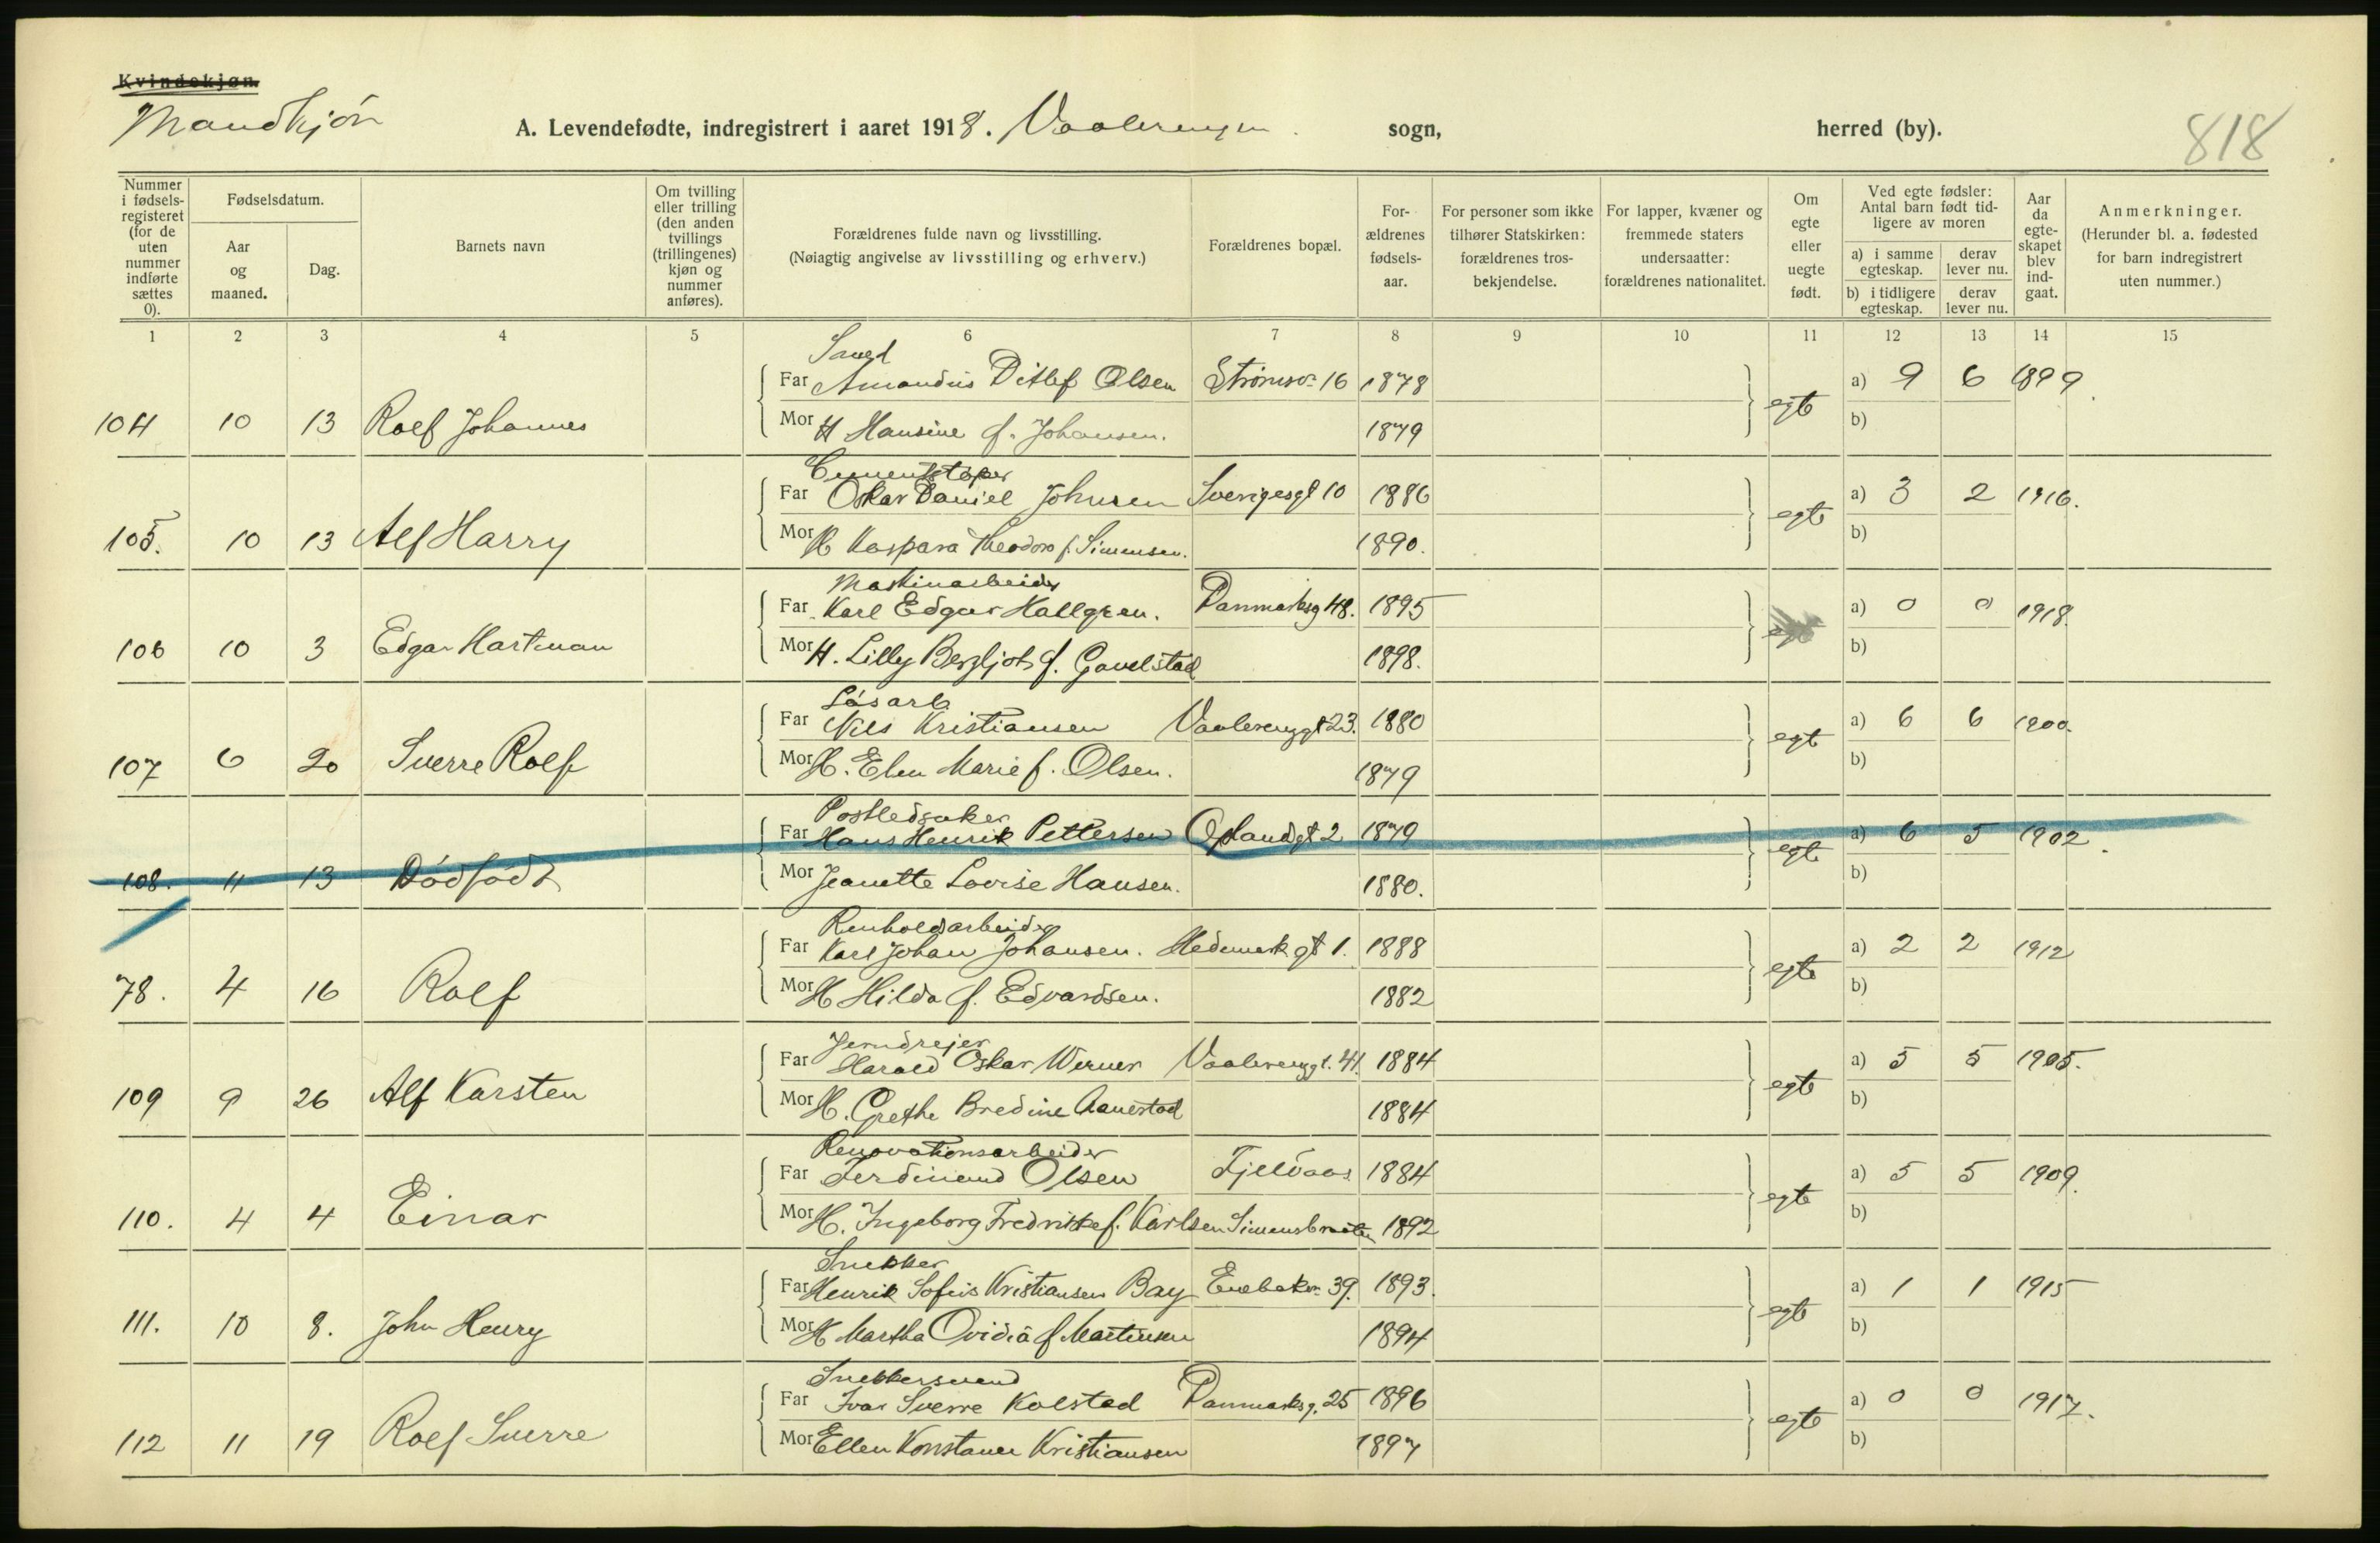 Kvindekjøn.
Mandkjøn
A. Levendefødte, indregistrert i aaret 1918. Vaalerengen sogn, herred (by).
818
Nummer i fødsels-registeret (for de uten nummer indførte sættes 0).
Fødselsdatum.
Aar og maaned.
Dag.
Barnets navn
Om tvilling eller trilling (den anden tvillings (trillingenes) kjøn og nummer anføres).
Forældrenes fulde navn og livsstilling.
(Nøiagtig angivelse av livsstilling og erhverv.)
Forældrenes bopæl.
For-ældrenes fødsels-aar.
For personer som ikke tilhører Statskirken: forældrenes tros-bekjendelse.
For lapper, kvæner og fremmede staters undersaatter: forældrenes nationalitet.
Om egte eller uegte født.
Ved egte fødsler: Antal barn født tid-ligere av moren
a) i samme egteskap.
derav lever nu.
b) i tidligere egteskap.
derav lever nu.
Aar da egte-skapet blev ind-gaat.
Anmerkninger.
(Herunder bl. a. fødested for barn indregistrert uten nummer.)
1 2 3 4 5 6 7 8 9 10 11 12 13 14 15
Far Amandus Ditlef Olsen Strømsv. 16 1878 a) 9 6 1899
104 10 13 Rolf Johannes egte
Mor H Hansine f. Johansen. 1879 b)
Cementstøper
Far Oskar Daniel Johnsen Sverigesgt 10 1886 a) 3 2 1916.
105. 10 13 Alf Harry egte
Mor H Kaspara Theodora f. Simensen. 1890. b)
Maskinarbeider
Far Karl Edgar Hallgren. Danmarksg 48. 1895 a) 0 0 1918.
106 10 3 Edgar Hartman egte
Mor H. Lilly Bergljot f. Gavelstad 1898. b)
Løsarb
Far Nils Kristiansen Vaalerenggt 23. 1880 a) 6 6 1900.
107 6 20 Sverre Rolf egte
Mor H. Elen Marie f. Olsen. 1879 b)
Postledsaker
Far Hans Henrik Pettersen Oplandgt 2 1879 a) 6 5 1902.
108. 11 13 Dødfødt egte
Mor Jeanette Lovise Hansen. 1880. b)
Renholdsarbeider
Far Karl Johan Johansen. Hedemark gt 1. 1888 a) 2 2 1912
78. 4 16 Rolf egte
Mor H Hilda f. Edvardsen. 1882 b)
Jerndrejer
Far Harald Oskar Werner Vaalerenggt. 41. 1884 a) 5 5 1905.
109 9 26 Alf Karsten egte
Mor H. Grethe Bredine Aanestad 1884 b)
Renovationsarbeider
Far Ferdinand Olsen Fjeldaas 1884 a) 5 5 1909.
110. 4 4 Einar egte
Mor H. Ingeborg Fredrikke f. Karlsen Simensbraaten 1892 b)
Snekker
Far Henrik Sofus Kristiansen Bay Enebakv. 39. 1893. a) 1 1 1915
111. 10 8. John Henry egte
Mor H Martha Ovidia f Martinsen 1894 b)
Snekkersvend
Far Ivar Sverre Kolstad Danmarksg. 25 1896 a) 0 0 1917.
112 11 19 Rolf Sverre egte
Mor Ellen Konstance Kristiansen 1897 b)